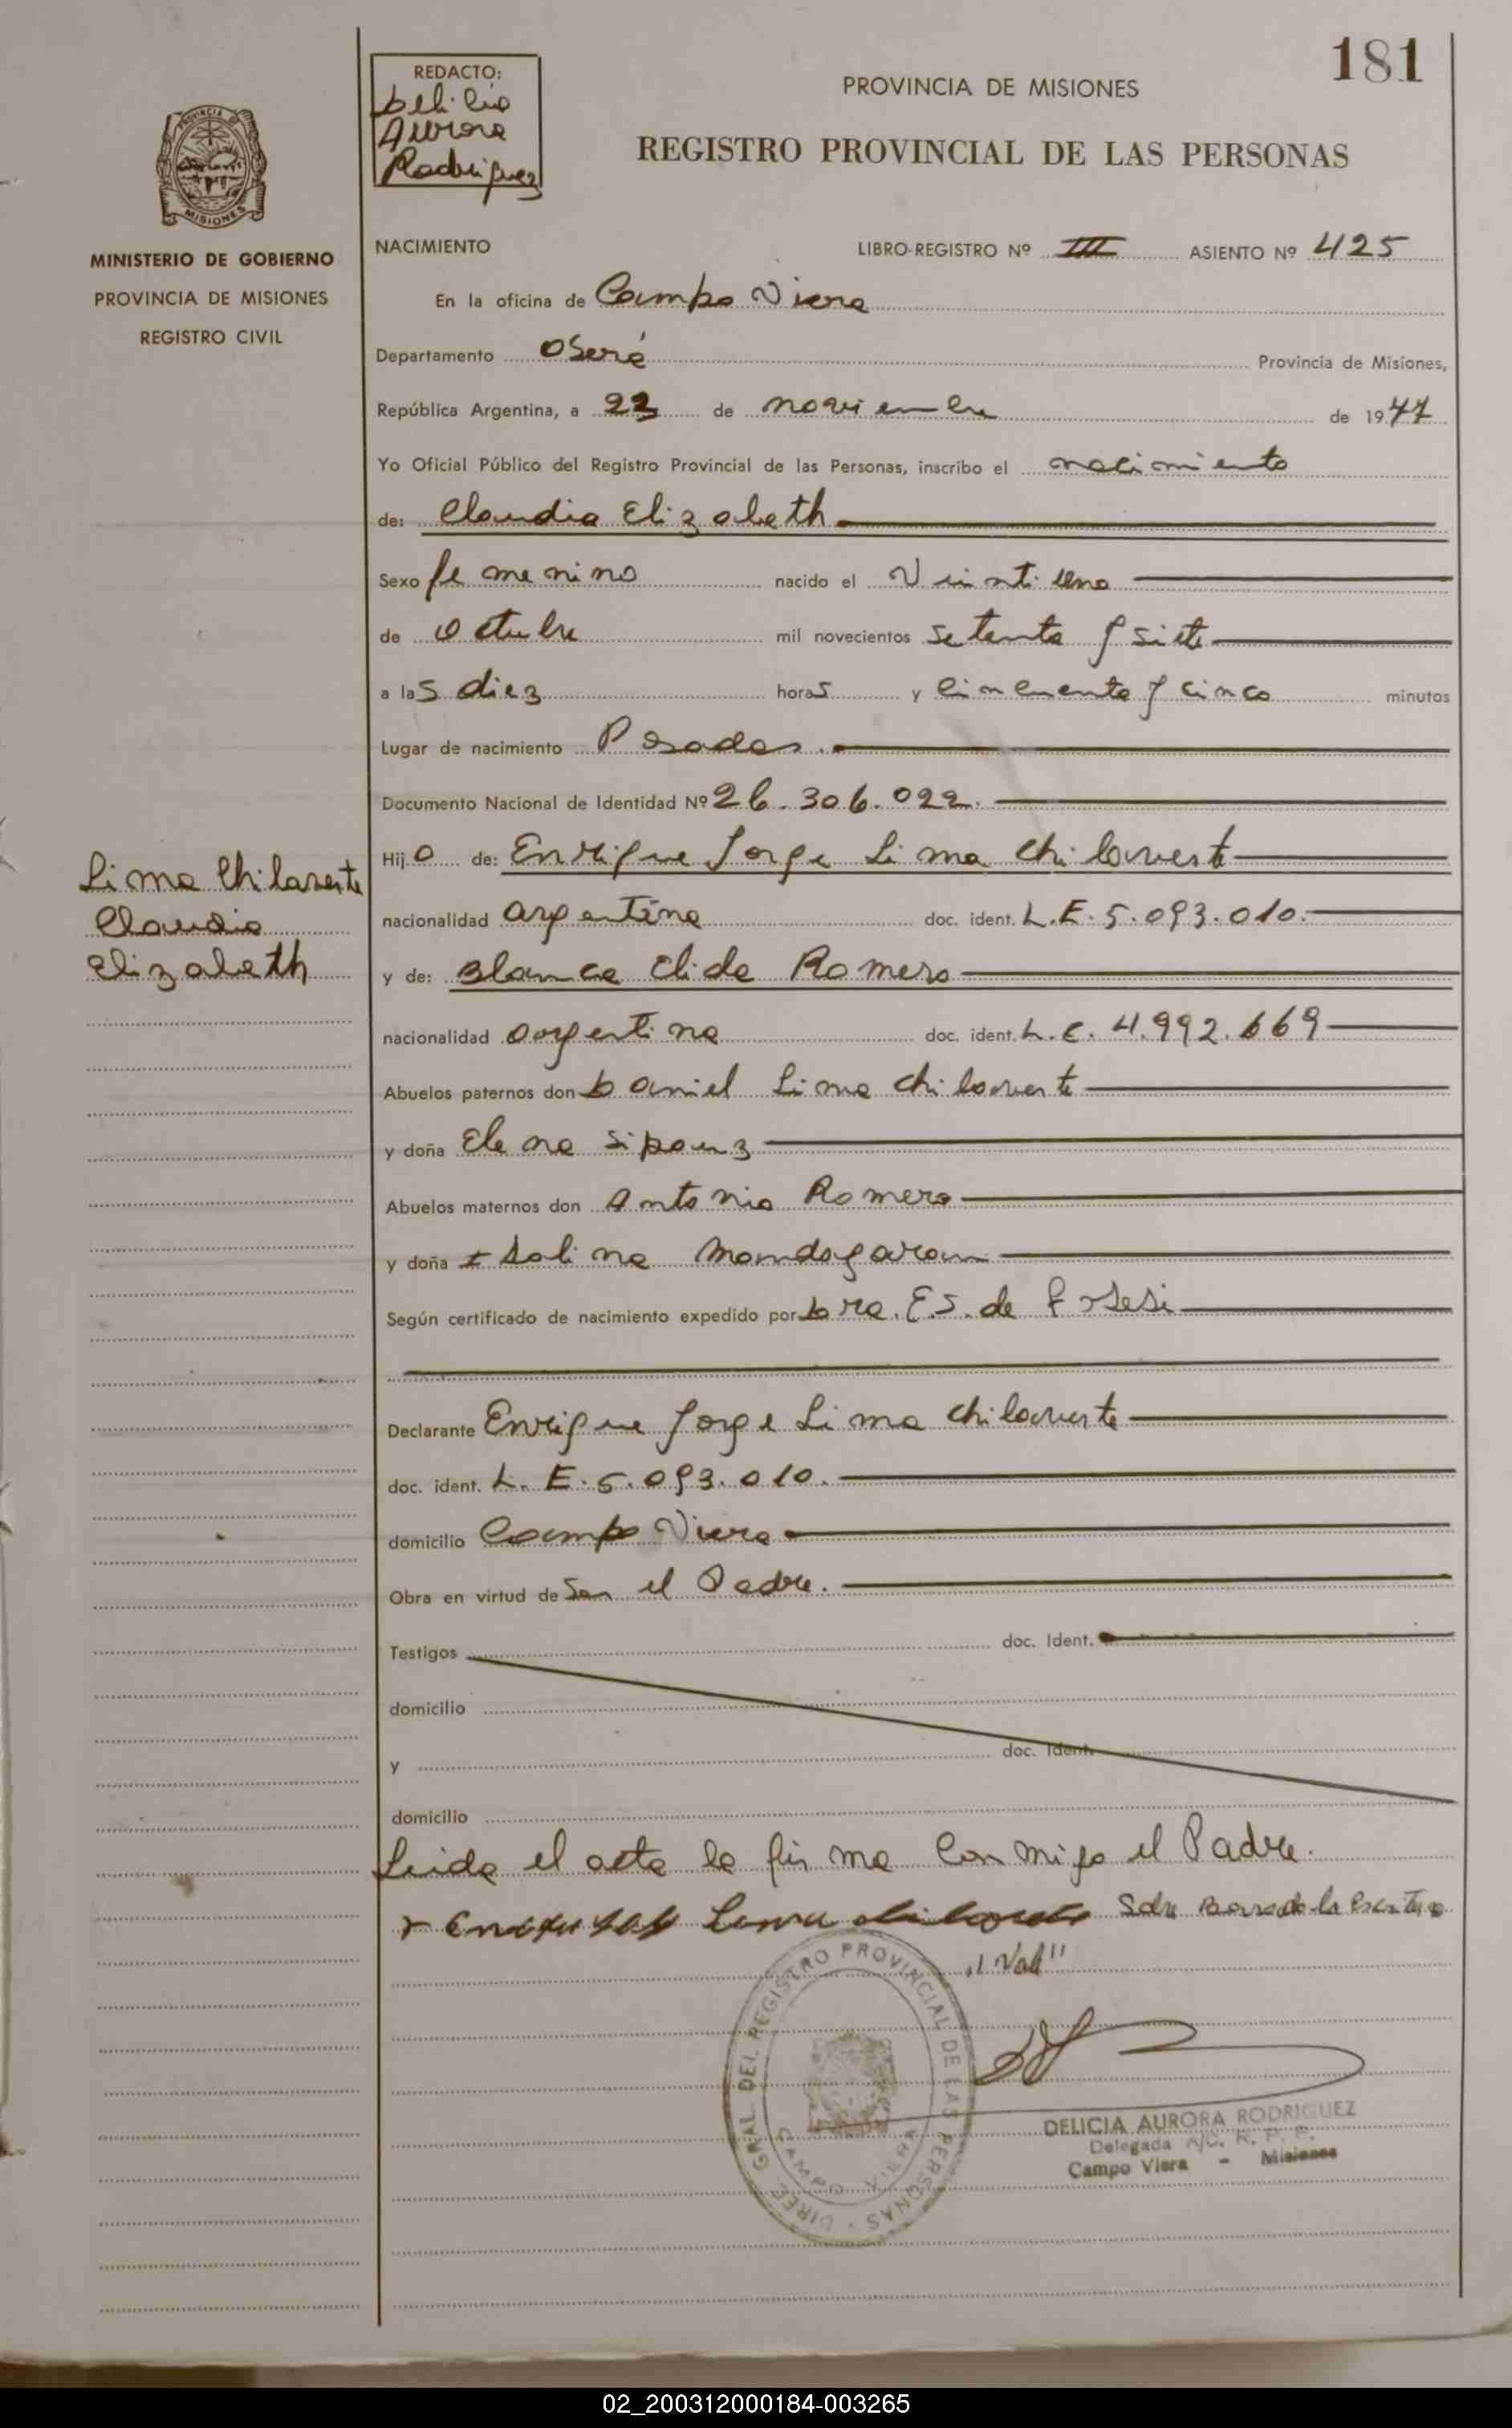 181
REDACTO:
Delicia
Aurora
Rodriguez
PROVINCIA DE MISIONES
REGISTRO PROVINCIAL DE LAS PERSONAS
PROVINCIA DE
MISIONES
MINISTERIO DE GOBIERNO
PROVINCIA DE MISIONES
REGISTRO CIVIL
NACIMIENTO LIBRO-REGISTRO Nº III ASIENTO Nº 425
En la oficina de Campo Viera
Departamento Oberá Provincia de Misiones,
República Argentina, a 22 de noviembre de 1977
Yo Oficial Público del Registro Provincial de las Personas, inscribo el nacimiento
de: Claudia Elizabeth
Sexo femenino nacido el Veintiuno
de Octubre mil novecientos setenta y siete
a las diez horas y cincuenta y cinco minutos
Lugar de nacimiento Posadas.
Documento Nacional de Identidad Nº 26.306.022.
Hija de: Enrique Jorge Lima Chilavert
Lima Chilavert
Claudia
Elizabeth
nacionalidad argentina doc. ident. L.E. 5.093.010.
y de: Blanca Elida Romero
nacionalidad argentina doc. ident. L.C. 4.992.669
Abuelos paternos don Daniel Lima Chilavert
y doña Elena
Abuelos maternos don Antonio Romero
y doña Isolina Mondagaron
Según certificado de nacimiento expedido por Dra. E.S. de
Declarante Enrique Jorge Lima Chilavert
doc. ident. L.E. 5.093.010.
domicilio Campo Viera
Obra en virtud de Ser el Padre.
Testigos doc. Ident.
domicilio
y doc. Ident.
domicilio
Leida el acta la firma Conmigo el Padre.
Sobre Borrado
"Vale"
DIREC. GRAL. DEL REGISTRO PROVINCIAL DE LAS PERSONAS
CAMPO VIERA
DELICIA AURORA RODRIGUEZ
Delegada A/C. R. P. P.
Campo Viera - Misiones
02_200312000184-003265